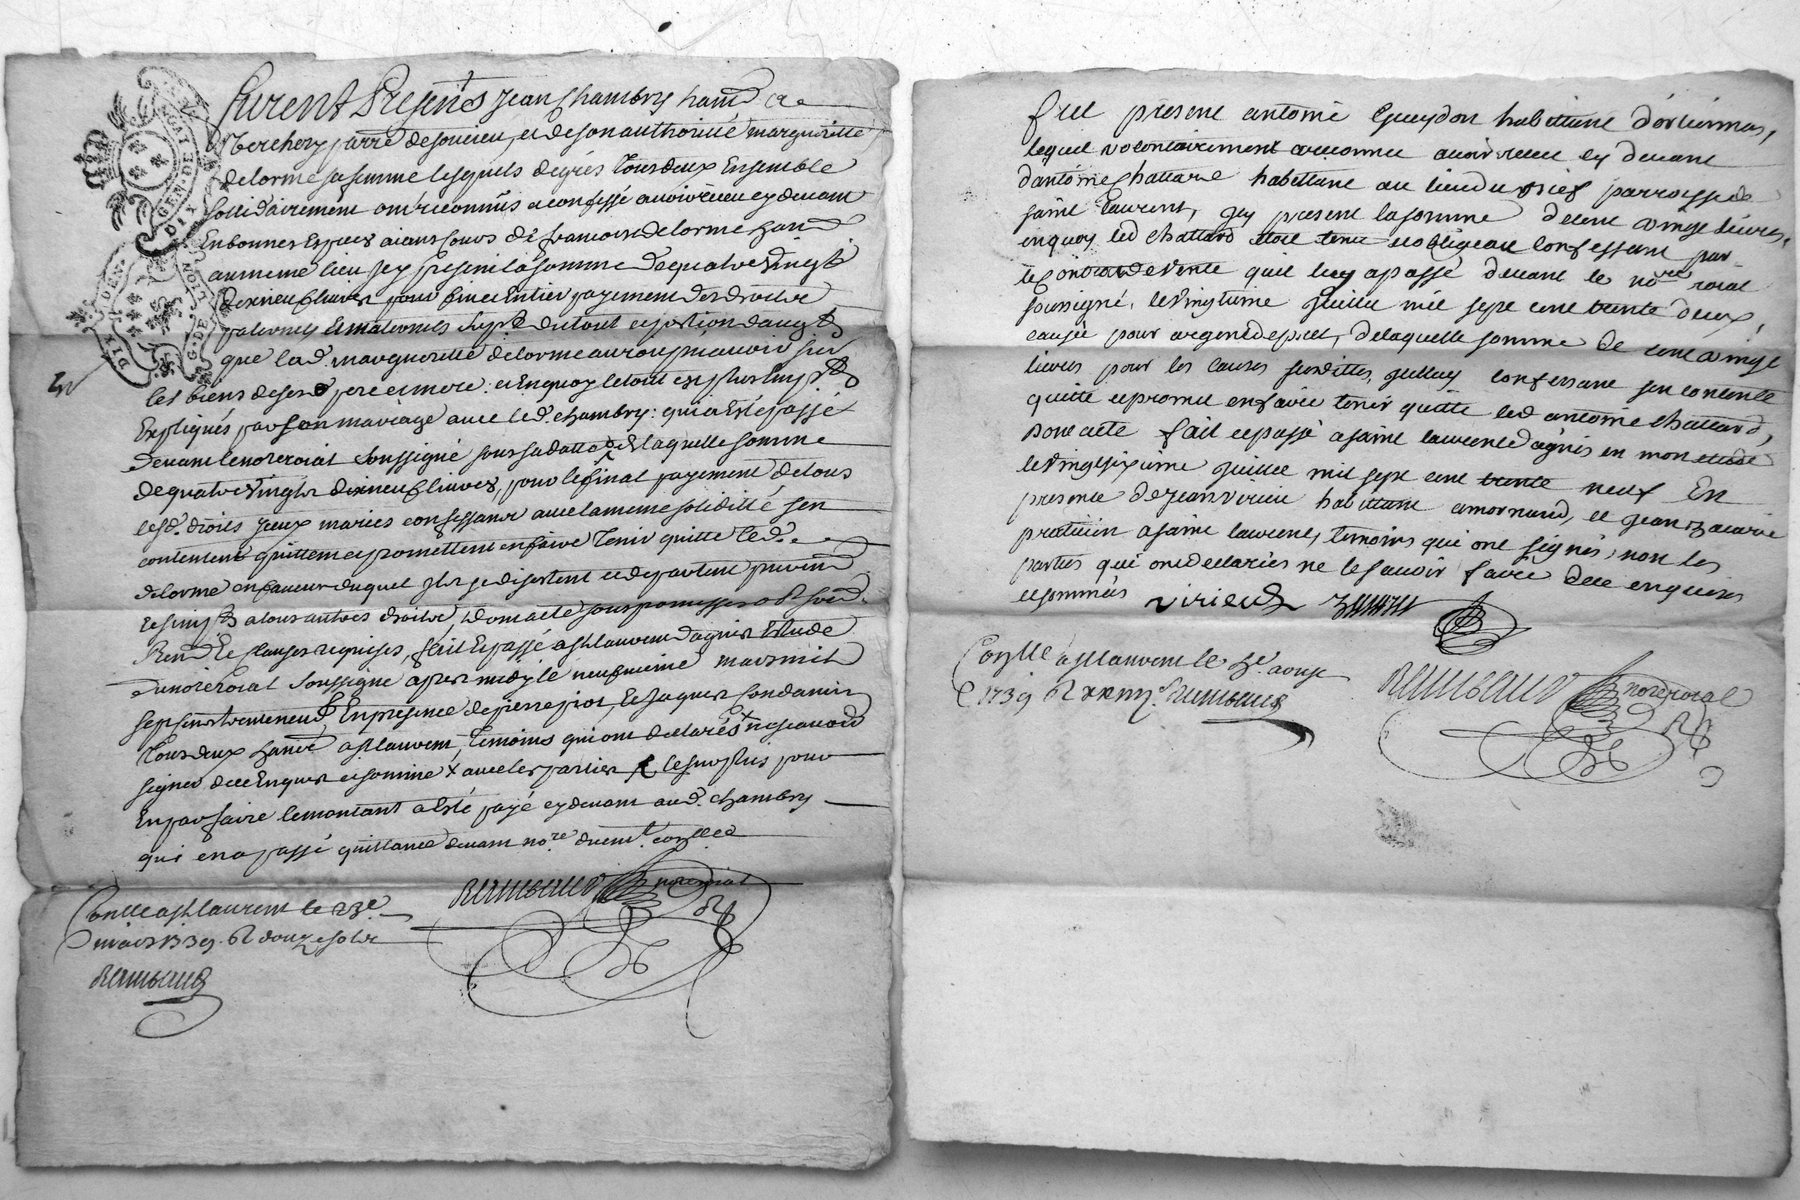 furent Presents Jean Chambry hant
parre de soucieu, et de son authorité margueritte
delorme sa femme lesquels de grés tous deux Ensemble
sollidairement ont reconnus et confessé avoir receu cy devant
En bonnes Especes aiant cours de francois delorme hant
au meme lieu Icy present la somme de quatre vingt
dix neuf livres pour fin et Entier payement des droits
paternels et maternels du tout et portion d'augt
que lad. margueritte delorme auroit peu avoir sur
les biens de ses pere et mere: et En quoy le tout est plus
Expliqués par son mariage avec led. chambry: qui a Esté passé
devant le no.re roial soussigné sous sa datte de laquelle somme
de quatre vingts dix neuf livres, pour le final payement de tous
lesd. droits Iceux mariés confessant avec la meme soliditté s'en
contentent quittent et promettent en faire tenir quitte led.
delorme en faveur duquel Ils se disistent et departent
a tous autres droits, dont acte sous promesses obl. soum.
Renon. et clauses requises, fait et passé a st laurent d'agnis Etude
du no.re roial soussigné apres midy le neufvieme mars mil
sept cent trente neuf, En presence de pierre piot, et Jaques condamin
tous deux hant. a st laurent, temoins qui ont declarés ne scavoir
signer de ce Enquis et sommé x avec les parties
En parfaire le montant a Esté payé cy devant aud. chambry
qui en a passé quittance devant no.re
GENERALITE DE LION
GEN. DE LION
DIX DEN.
Conlle a st laurent le 23e
mars 1739. R douze sols
Raimbaud
Raimbaud no.re roial
fut present antoine Gueydon habittant d'orliennas,
lequel volontairement a reconnu avoir receu cy devant
d'antoine chattard habittant au lieu du parroisse de
saint laurent, Icy present la somme de cent vingt livres,
en quoy led chattard etoit tenu et obligé au confessant par
le contrat de vente qu'il luy a passé devant le no.re roial
soussigné, le vingtieme Juillet mil sept cent trente deux,
causée pour argent de pret, de laquelle somme de cent vingt
livres pour les causes susdittes, Icelluy confessant s'en contente
quitte et promet en faire tenir quitte led antoine chattard,
dont acte fait et passé a saint laurent d'agnis en mon etude
le vingt sixieme Juillet mil sept cent trente neuf En
presence de Jean virieu habittant a mornand, et Jean zacarie
praticien a saint laurent, temoins qui ont signés, non les
parties qui ont declarées ne le scavoir faire de ce enquises
et sommées
virieu
Conlle a st laurent le aoust
1739 R Raimbaud
Raimbaud no.re roial